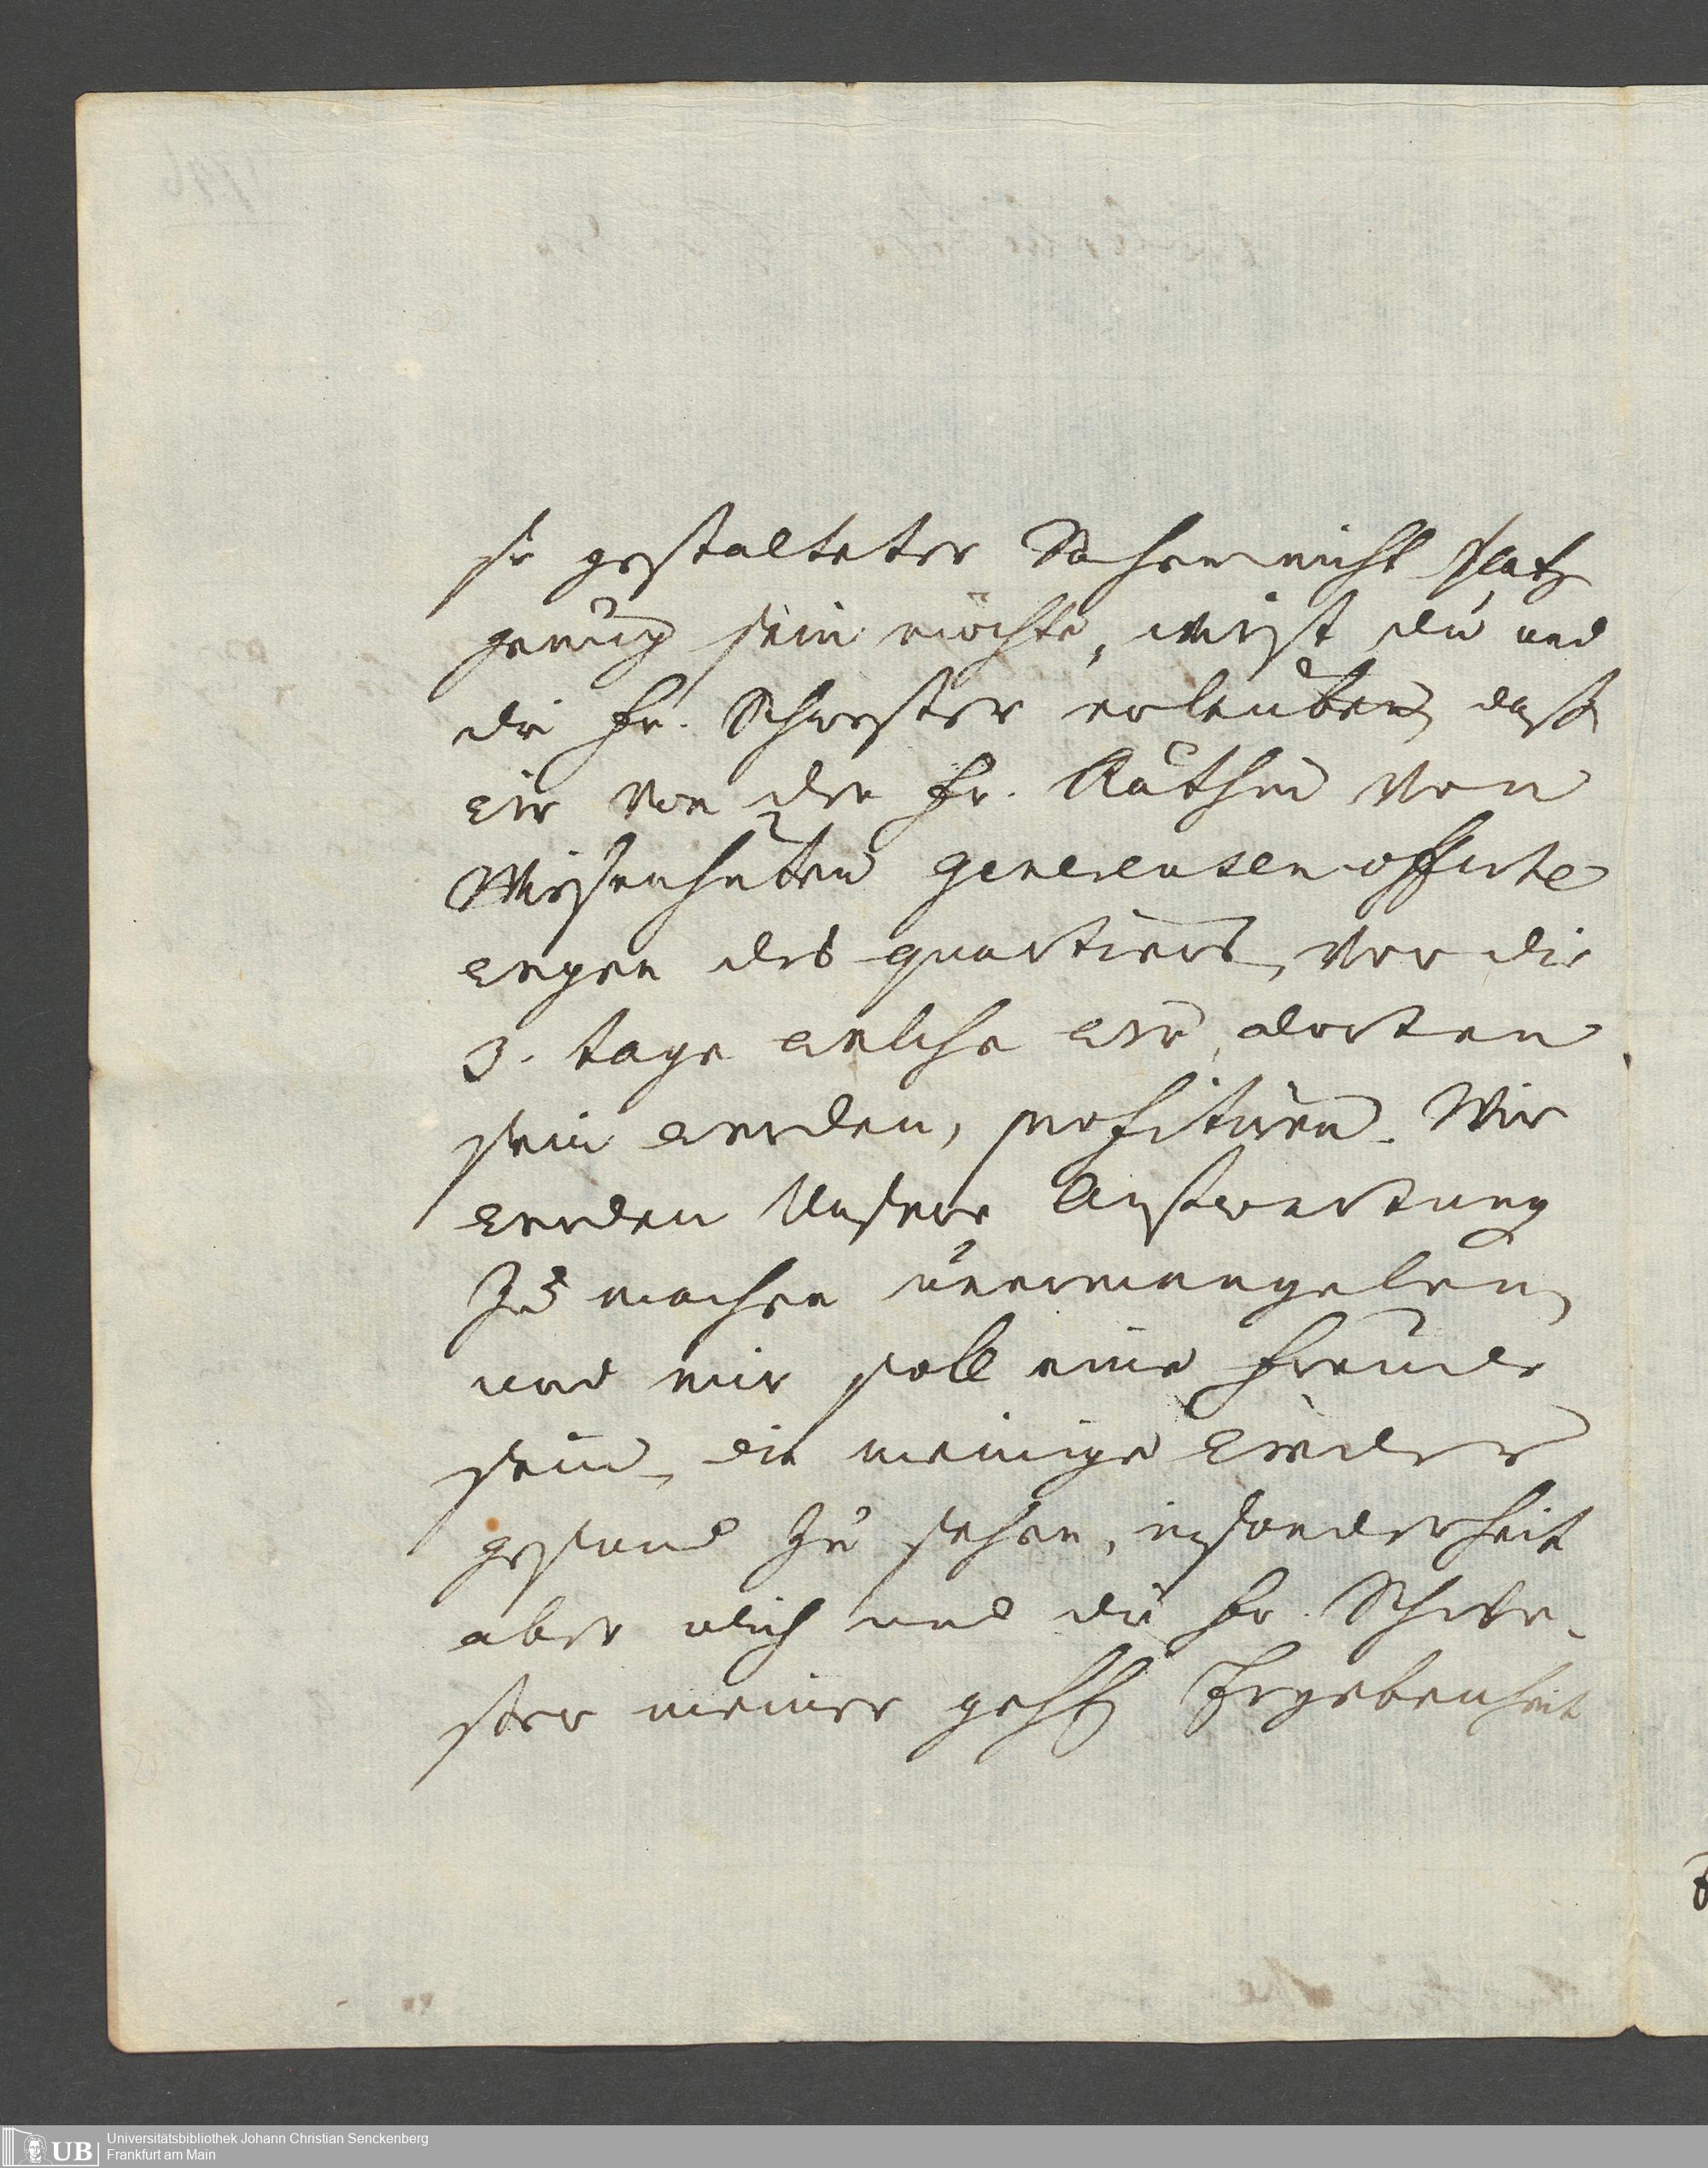 so gestalteter Sachen nicht platz
genug sein möchte, wirst du und
die Fr. Schwester erlauben, daß
wir von der Fr. Räthin von
Wisenhüten genereusen offerte
wegen des quartiers, vor die
3. tage welche wir dorten
sein werden, profitiren. Wir
werden Unsere Aufwartung
zu machen unermangelen,
und mir soll eine Freude
sein, die meinige wieder
gesund zu sehen, insonderheit
aber dich und die Fr. Schwe-
ster meiner Ergebenheit
Universitätsbibliothek Johann Christian Senckenberg
UB Frankfurt am Main